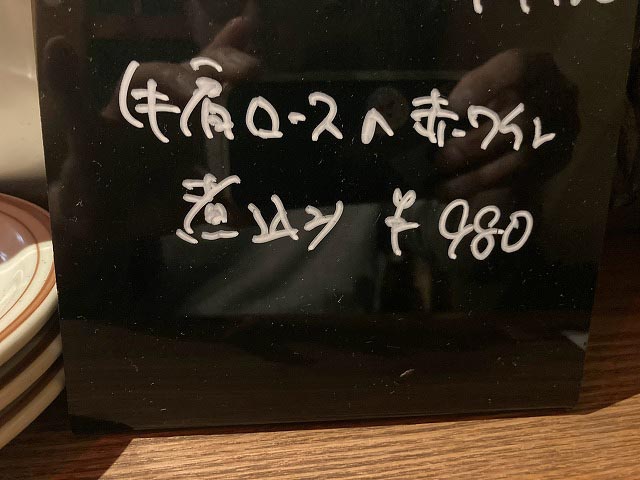 牛肩ロースの赤ワイン
煮込み ¥980